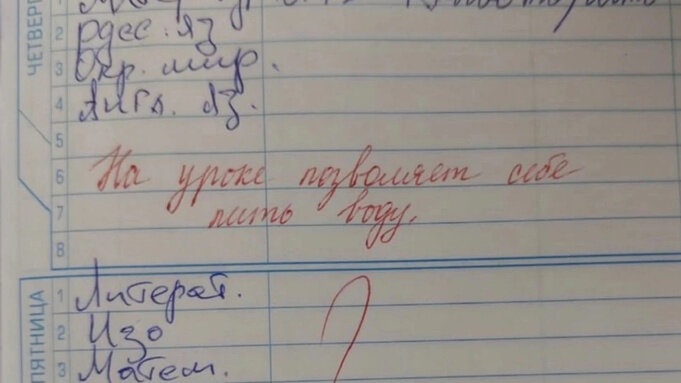 ЧЕТВЕРГ
2 Русс. яз
3 Окр. мир.
4 Англ. яз.
5
6 На уроке позволяет себе
7 пить воду.
8
ПЯТНИЦА
1 Литерат.
2 Изо
3 Матем.